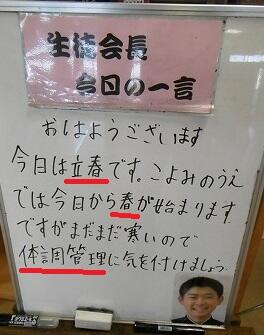 生徒会長
今日の一言
おはようございます
今日は立春です。こよみのうえ
では今日から春が始まります
ですがまだまだ寒いので
体調管理に気を付けましょう。